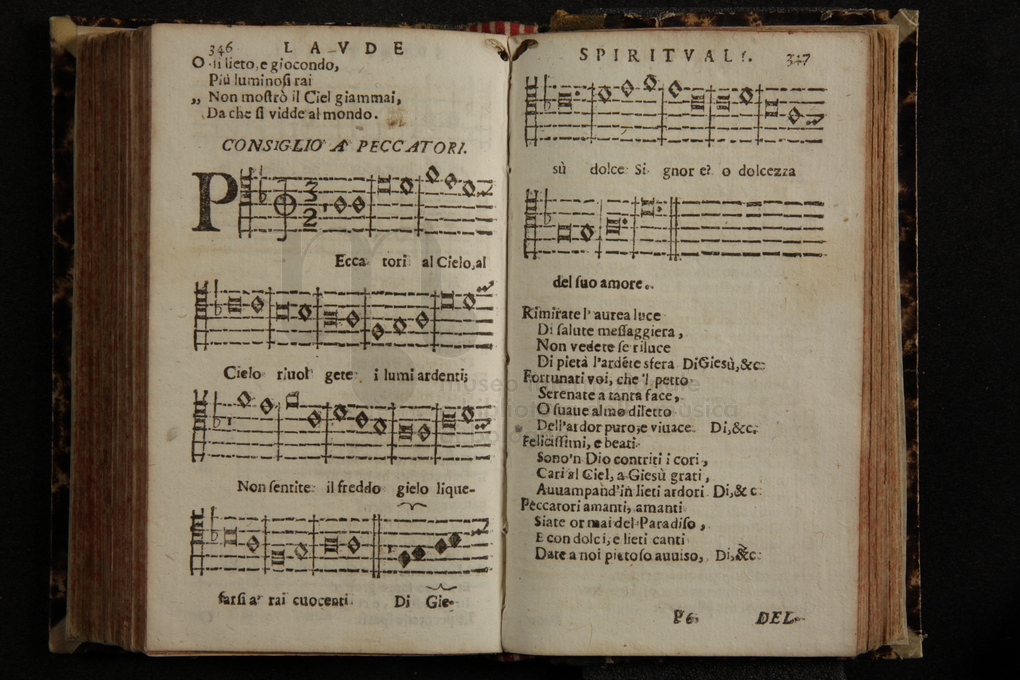 346 LAVDE
O sì lieto, e giocondo,
Più luminosi rai
„ Non mostrò il Ciel giammai,
Da che si vidde al mondo.
CONSIGLIO A' PECCATORI.
P
Ecca tori al Cielo, al
Cielo riuol gete i lumi ardenti;
Non sentite il freddo gielo lique-
farsi a' rai cuocenti Di Gie-
SPIRITVALI. 347
sù dolce Si gnore? o dolcezza
del suo amore.
Rimirate l'aurea luce
Di salute messaggiera,
Non vedete se riluce
Di pietà l'ardēte sfera Di Giesù,&c.
Fortunati voi, che 'l petto
Serenate a tanta face,
O suaue almo diletto
Dell'ardor puro, e viuace. Di,&c.
Felicissimi, e beati
Sono'n Dio contriti i cori,
Cari al Ciel, a Giesù grati,
Auuampand'in lieti ardori Di,&c.
Peccatori amanti, amanti
Siate ormai del Paradiso,
E con dolci, e lieti canti
Date a noi pietoso auuiso, Di,&c.
P 6 DEL